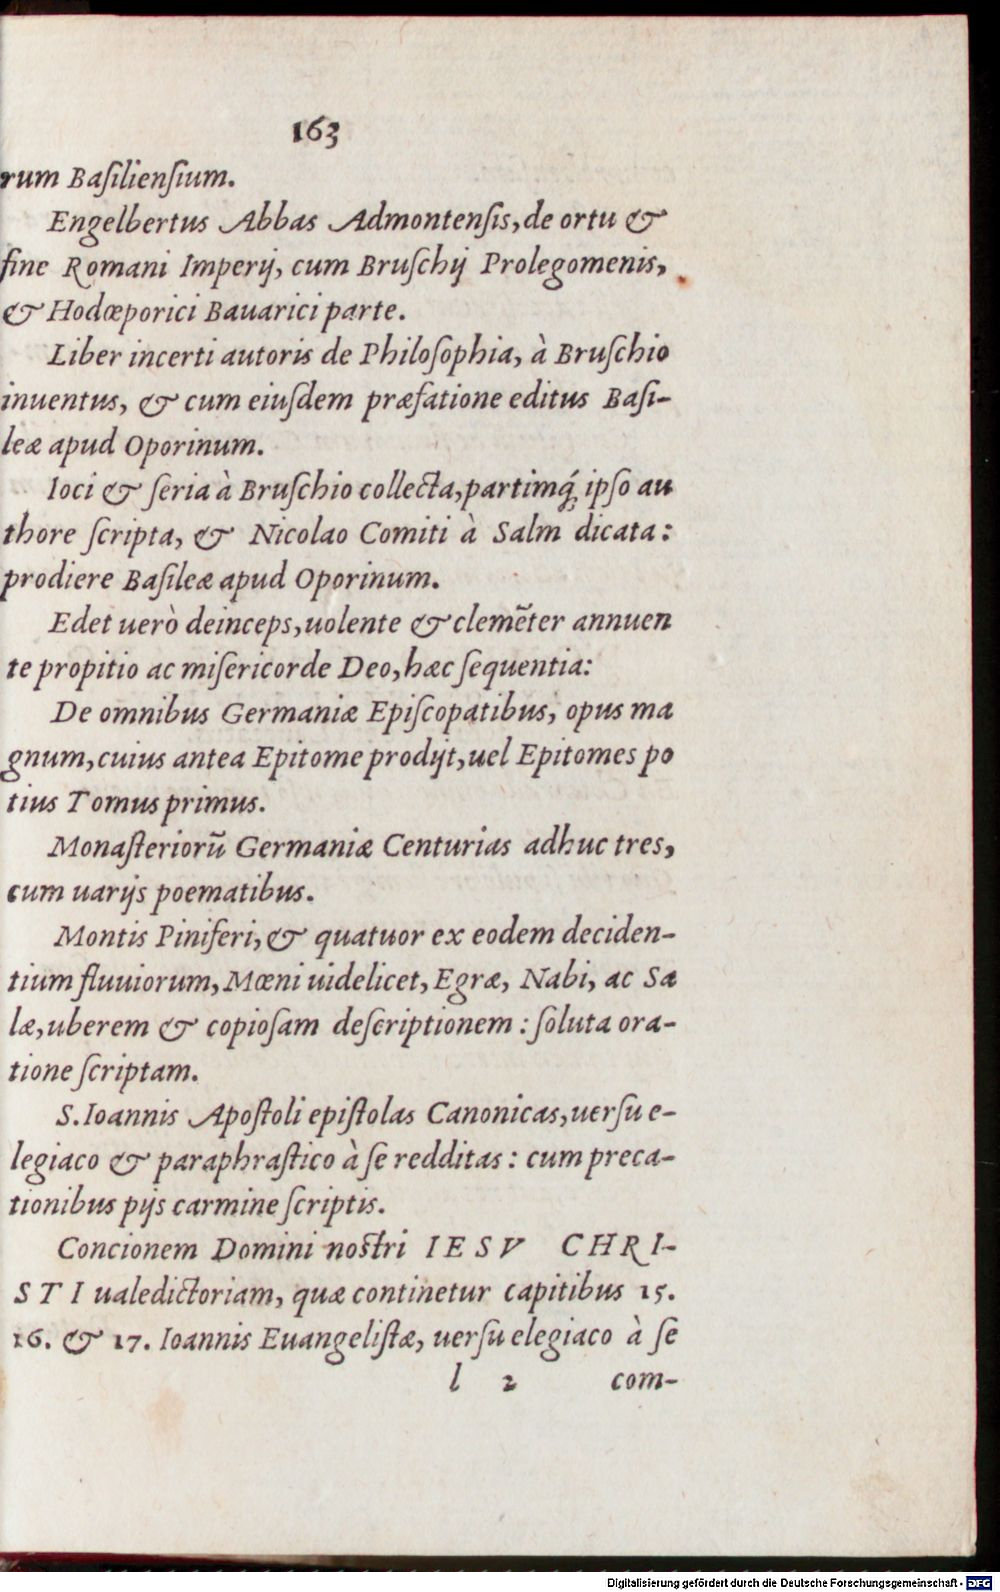 163
rum Baſilienſium.
Engelbertus Abbas Admontenſis, de ortu &
fine Romani Imperij, cum Bruſchij Prolegomenis,
& Hodœporici Bauarici parte.
Liber incerti autoris de Philoſophia, à Bruſchio
inuentus, & cum eiuſdem præfatione editus Baſi-
leæ apud Oporinum.
Ioci & ſeria à Bruſchio collecta, partimq́; ipſo au
thore ſcripta, & Nicolao Comiti à Salm dicata:
prodiere Baſileæ apud Oporinum.
Edet uerò deinceps, uolente & clemẽter annuen
te propitio ac miſericorde Deo, hæc ſequentia:
De omnibus Germaniæ Epiſcopatibus, opus ma
gnum, cuius antea Epitome prodijt, uel Epitomes po
tius Tomus primus.
Monaſteriorũ Germaniæ Centurias adhuc tres,
cum uarijs poematibus.
Montis Piniferi, & quatuor ex eodem deciden-
tium fluuiorum, Mœni uidelicet, Egræ, Nabi, ac Sa
læ, uberem & copioſam deſcriptionem: ſoluta ora-
tione ſcriptam.
S. Ioannis Apoſtoli epiſtolas Canonicas, uerſu e-
legiaco & paraphraſtico à ſe redditas: cum preca-
tionibus pijs carmine ſcriptis.
Concionem Domini noſtri IESV CHRI-
STI ualedictoriam, quæ continetur capitibus 15.
16. & 17. Ioannis Euangeliſtæ, uerſu elegiaco à ſe
l 2 com-
Digitalisierung gefördert durch die Deutsche Forschungsgemeinschaft - DFG